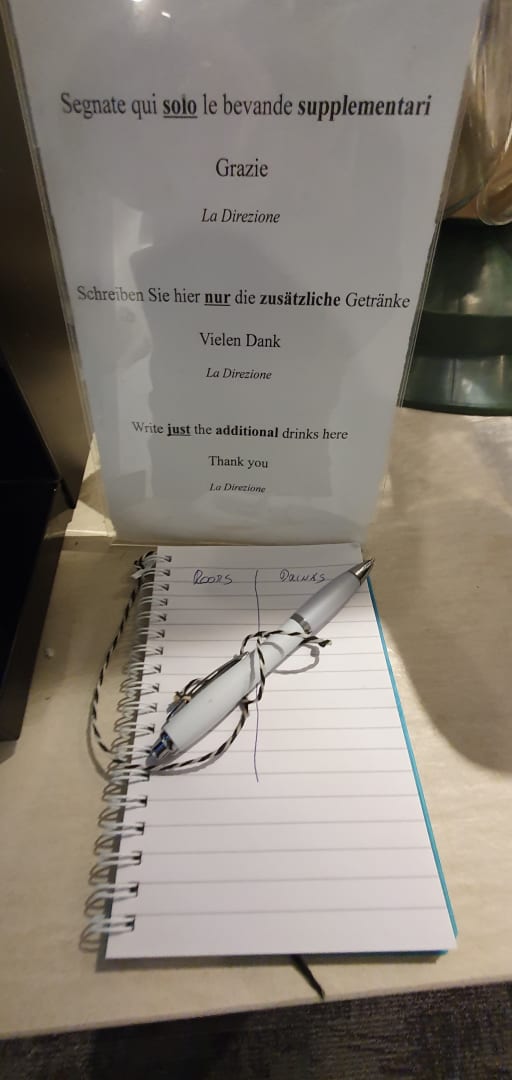 Segnate qui solo le bevande supplementari
Grazie
La Direzione
Schreiben Sie hier nur die zusätzliche Getränke
Vielen Dank
La Direzione
Write just the additional drinks here
Thank you
La Direzione
ROOMS DRINKS